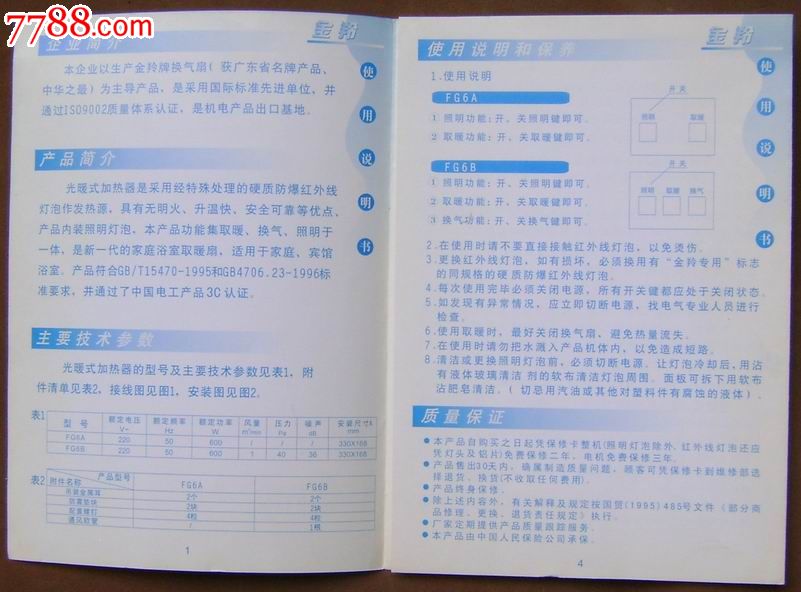 7788.com
中国收藏热线
企业简介
金羚
本企业以生产金羚牌换气扇(获广东省名牌产品、
中华之最)为主导产品,是采用国际标准先进单位,并
通过ISO9002质量体系认证,是机电产品出口基地。
使用说明书
产品简介
光暖式加热器是采用经特殊处理的硬质防爆红外线
灯泡作发热源,具有无明火、升温快、安全可靠等优点、
产品内装照明灯泡,本产品功能集取暖、换气、照明于
一体,是新一代的家庭浴室取暖扇,适用于家庭、宾馆
浴室。产品符合GB/T15470-1995和GB4706.23-1996标
准要求,并通过了中国电工产品3C认证。
主要技术参数
光暖式加热器的型号及主要技术参数见表1,附
件清单见表2,接线图见图1,安装图见图2。
表1
型号 额定电压 V~ 额定频率 Hz 额定功率 W 风量 m³/min 压力 Pa 噪声 dB 安装尺寸A mm
FG6A 220 50 600 / / / 330X168
FG6B 220 50 600 1 40 36 330X168
表2
附件名称 产品型号 FG6A FG6B
吊装金属耳 2个 2个
防震垫块 2块 2块
配套螺钉 4粒 4粒
通风软管 / 1根
1
使用说明和保养
金羚
1.使用说明
FG6A
1 照明功能:开、关照明键即可。
2 取暖功能:开、关取暖键即可。
开关
照明 取暖
FG6B
1 照明功能:开、关照明键即可。
2 取暖功能:开、关取暖键即可。
3 换气功能:开、关换气键即可。
开关
照明 取暖 换气
使用说明书
2.在使用时请不要直接接触红外线灯泡,以免烫伤。
3.更换红外线灯泡,如有损坏,必须换用有“金羚专用”标志
的同规格的硬质防爆红外线灯泡。
4.每次使用完毕必须关闭电源,所有开关键都应处于关闭状态。
5.如发现有异常情况,应立即切断电源,找电气专业人员进行
检查。
6.使用取暖时,最好关闭换气扇、避免热量流失。
7.在使用时请勿把水溅入产品机体内,以免造成短路。
8.清洁或更换照明灯泡前,必须切断电源。让灯泡冷却后,用沾
有液体玻璃清洁 剂的软布清洁灯泡周围。面板可拆下用软布
沾肥皂清洁。(切忌用汽油或其他对塑料件有腐蚀的液体)。
质量保证
●本产品自购买之日起凭保修卡整机(照明灯泡除外、红外线灯泡还应
凭灯头及铝片)免费保修二年,电机免费保修三年。
●产品售出30天内,确属制造质量问题,顾客可凭保修卡到维修部选
择退货、换货(不收取任何费用)。
●产品终身保修。
●除上述内容外,有关解释及规定按国贸(1995)485号文件《部分商
品修理、更换、退货责任规定》执行。
●厂家定期提供产品质量跟踪服务。
●本产品由中国人民保险公司承保。
4